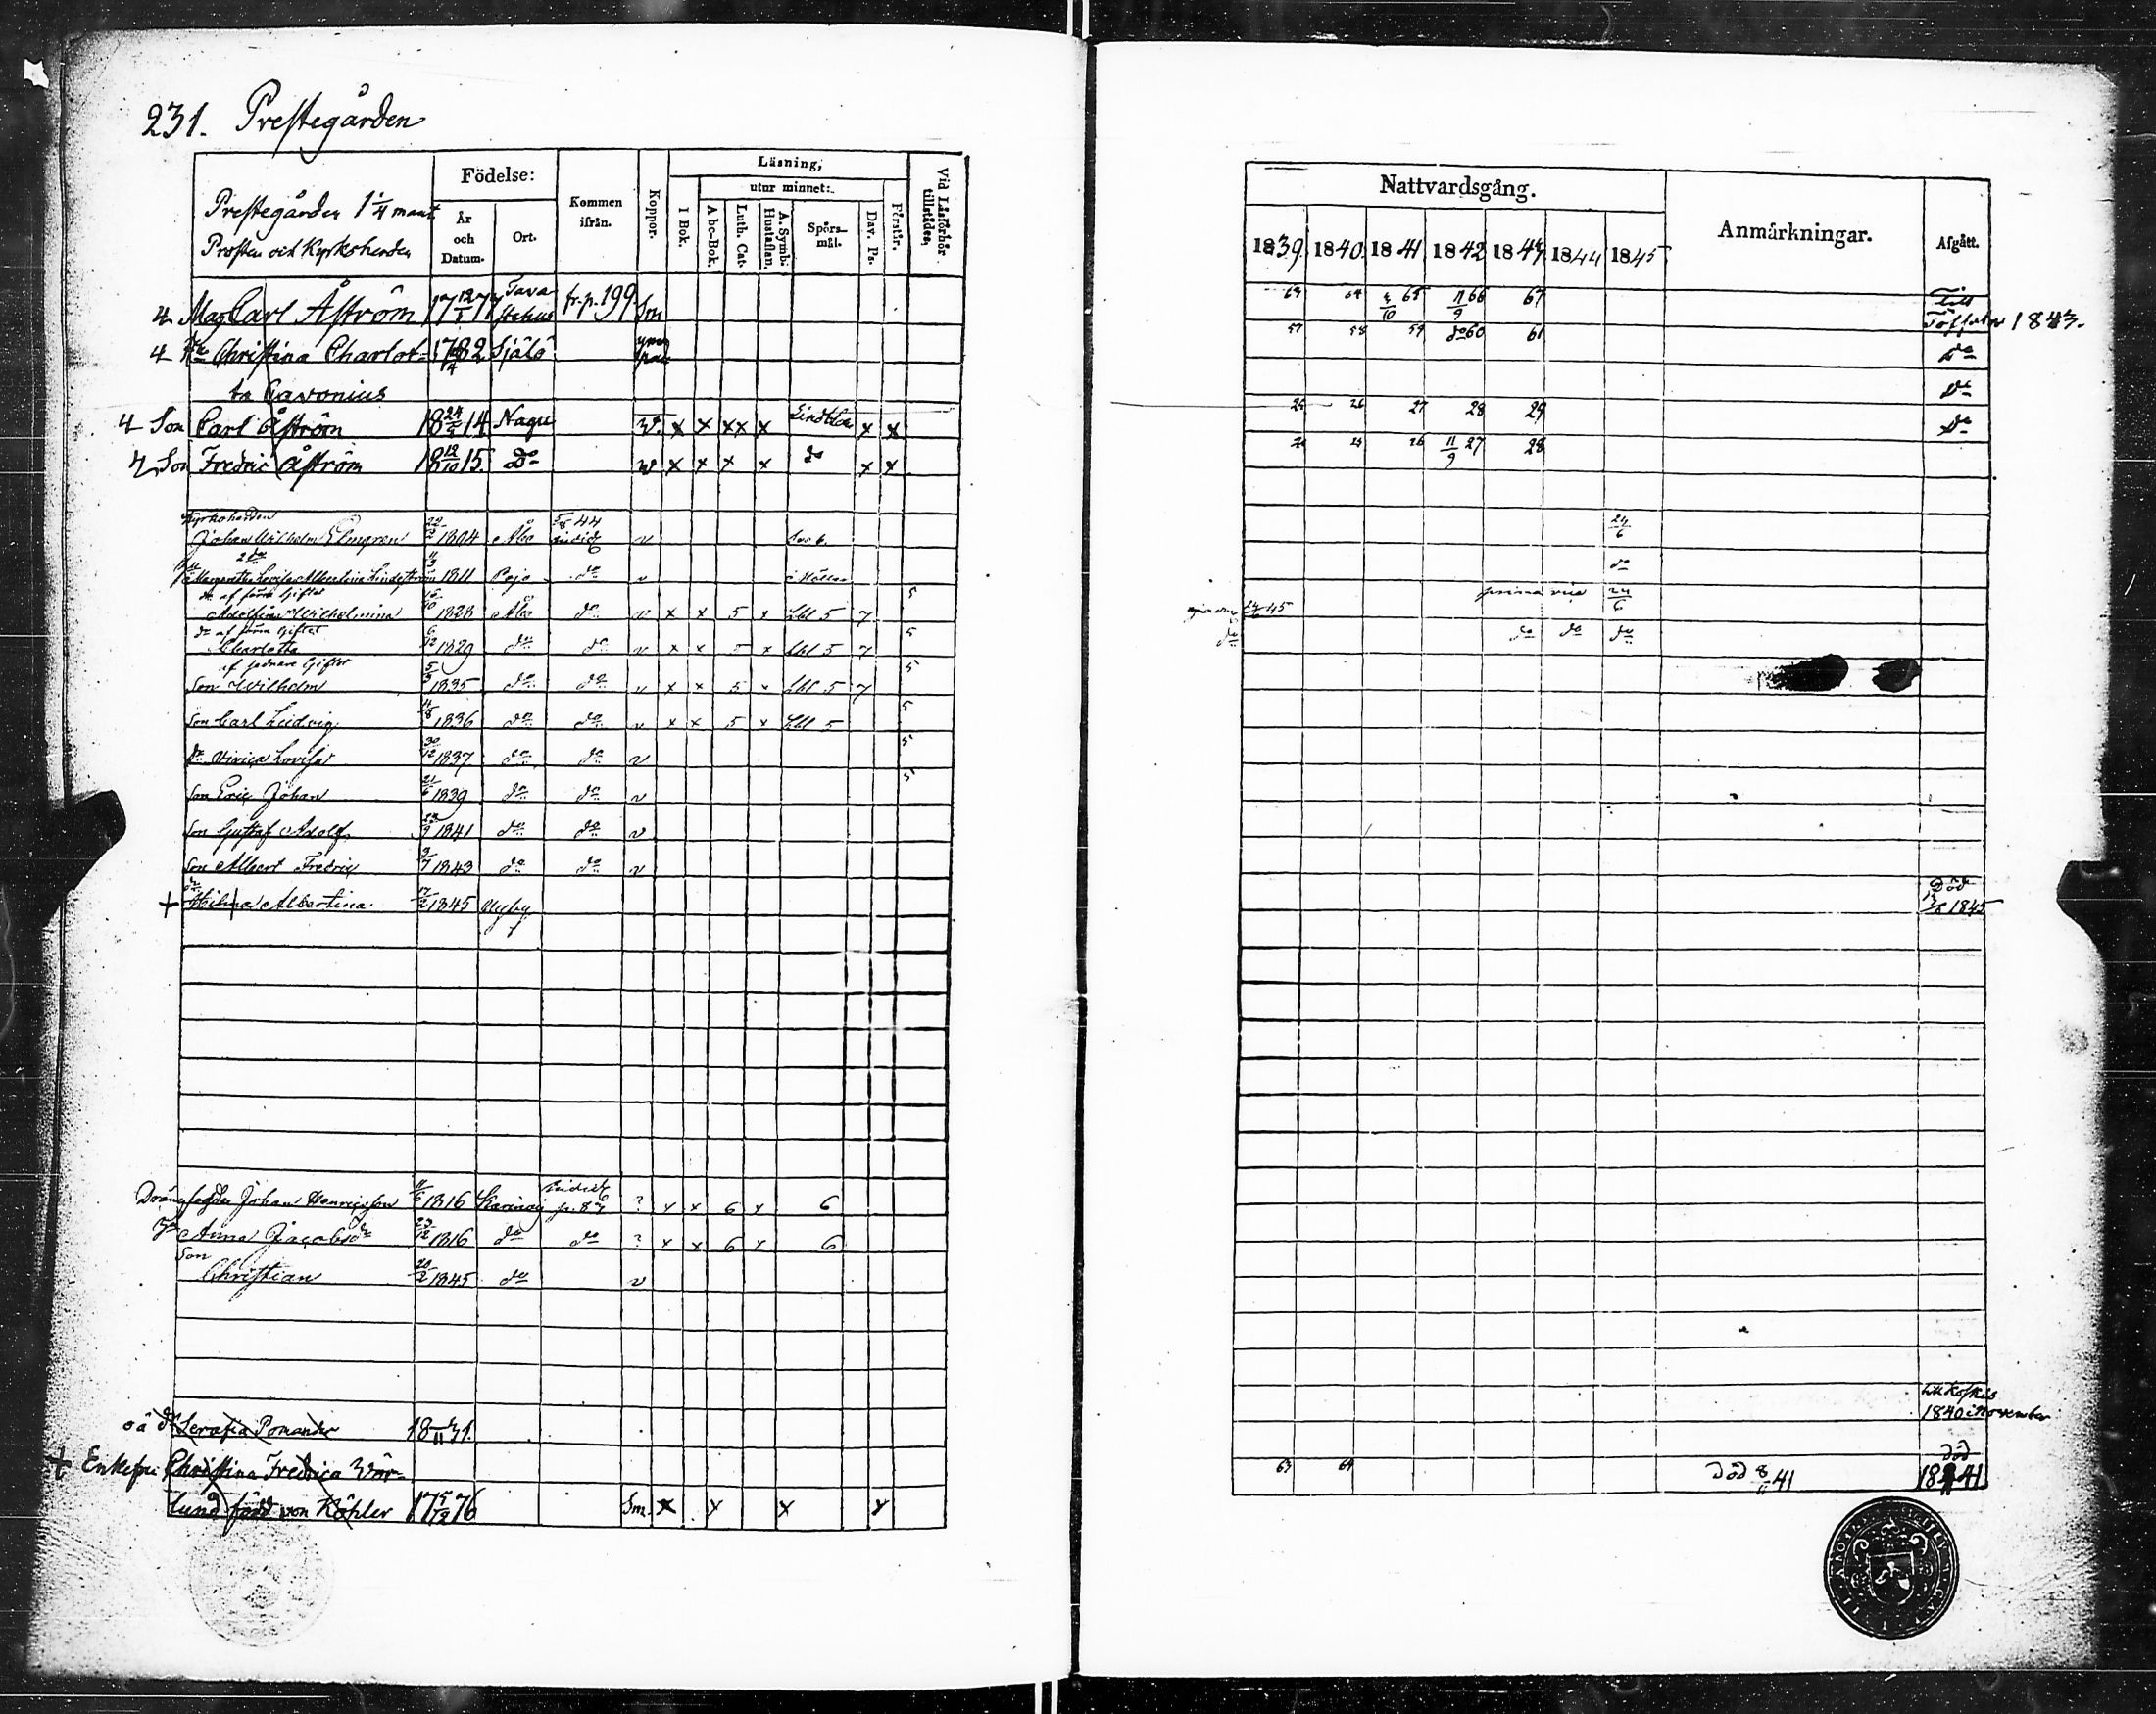 231. Prestegården
Prestegården 1 1/4 mant
Prosten och Kyrkoherden
Födelse:
År och Datum.
Ort.
Kommen ifrån.
Koppor.
Läsning,
utur minnet:
I Bok.
A bc-Bok.
Luth. Cat.
A. Symb. Hustaflan.
Spörs-mål.
Dav. Ps.
Förstår.
Vid Läsförhör tillstädes,
4 Mag Carl Åström 17 12/1 77 Tavastehus fr. p. 199 Sm
4 Christina Charlot- 1782 Själö
ta Cavonius
4 Son Carl Åström 18 24/5 14 Nagu v. x x xx x x x
4 Son Fredric Åström 18 12/10 15. Do v x x x x do x x
Kyrkoherden
Johan Wilhelm Elmgren 22/2 1804 Åbo 5/8 44 v
Margaretha Lovisa Albertina Lindeström 11/3 1811 Pojo do v
dr af förra Giftet
Adolfina Wilhelmina 15/10 1828 Åbo do v x x 5 x 5 7 5
dr af förra Giftet
Charlotta 6/12 1829 do do v x x 5 x 5 7 5
af sednare Giftet
Son Wilhelm 5/3 1835 do do v x x 5 x 5 7 5
Son Carl Ludvig 1836 do do v x x 5 x 5 5
dr Vivica Lovisa 30/12 1837 do do v 5
Son Eric Johan 21/6 1839 do do v 5
Son Gustaf Adolf 1841 do do v
Son Albert Fredric 3/7 1843 do do v
+ dr Hilma Albertina 17/2 1845 Nyby
Johan Henricsson 11/6 1816 ? x x 6 x 6
Anna Jacobsdr 23/12 1816 do do ? x x 6 x 6
Son
Christian 20/2 1845 do v
oä dr Serafia Pomander 18 /11 31.
+ Enkefru Christina Fredrica Wör-
lund född von Köhler 17 5/2 76 Sm. x x x x
Nattvardsgång.
Anmärkningar.
Afgått.
1839. 1840. 1841 1842 1843 1844 1845
64 4/10 65 11/9 66 67 Till 1843.
57 58 59 do 60 61 Do
Do
25 26 27 28 29 Do
25 26 11/9 27 28
24/6
do
prima vice 24/6
24/6 45
do do do do
Död 1845
till Koskis
1840 i November
63 64 Död 8/11 41 död 1841